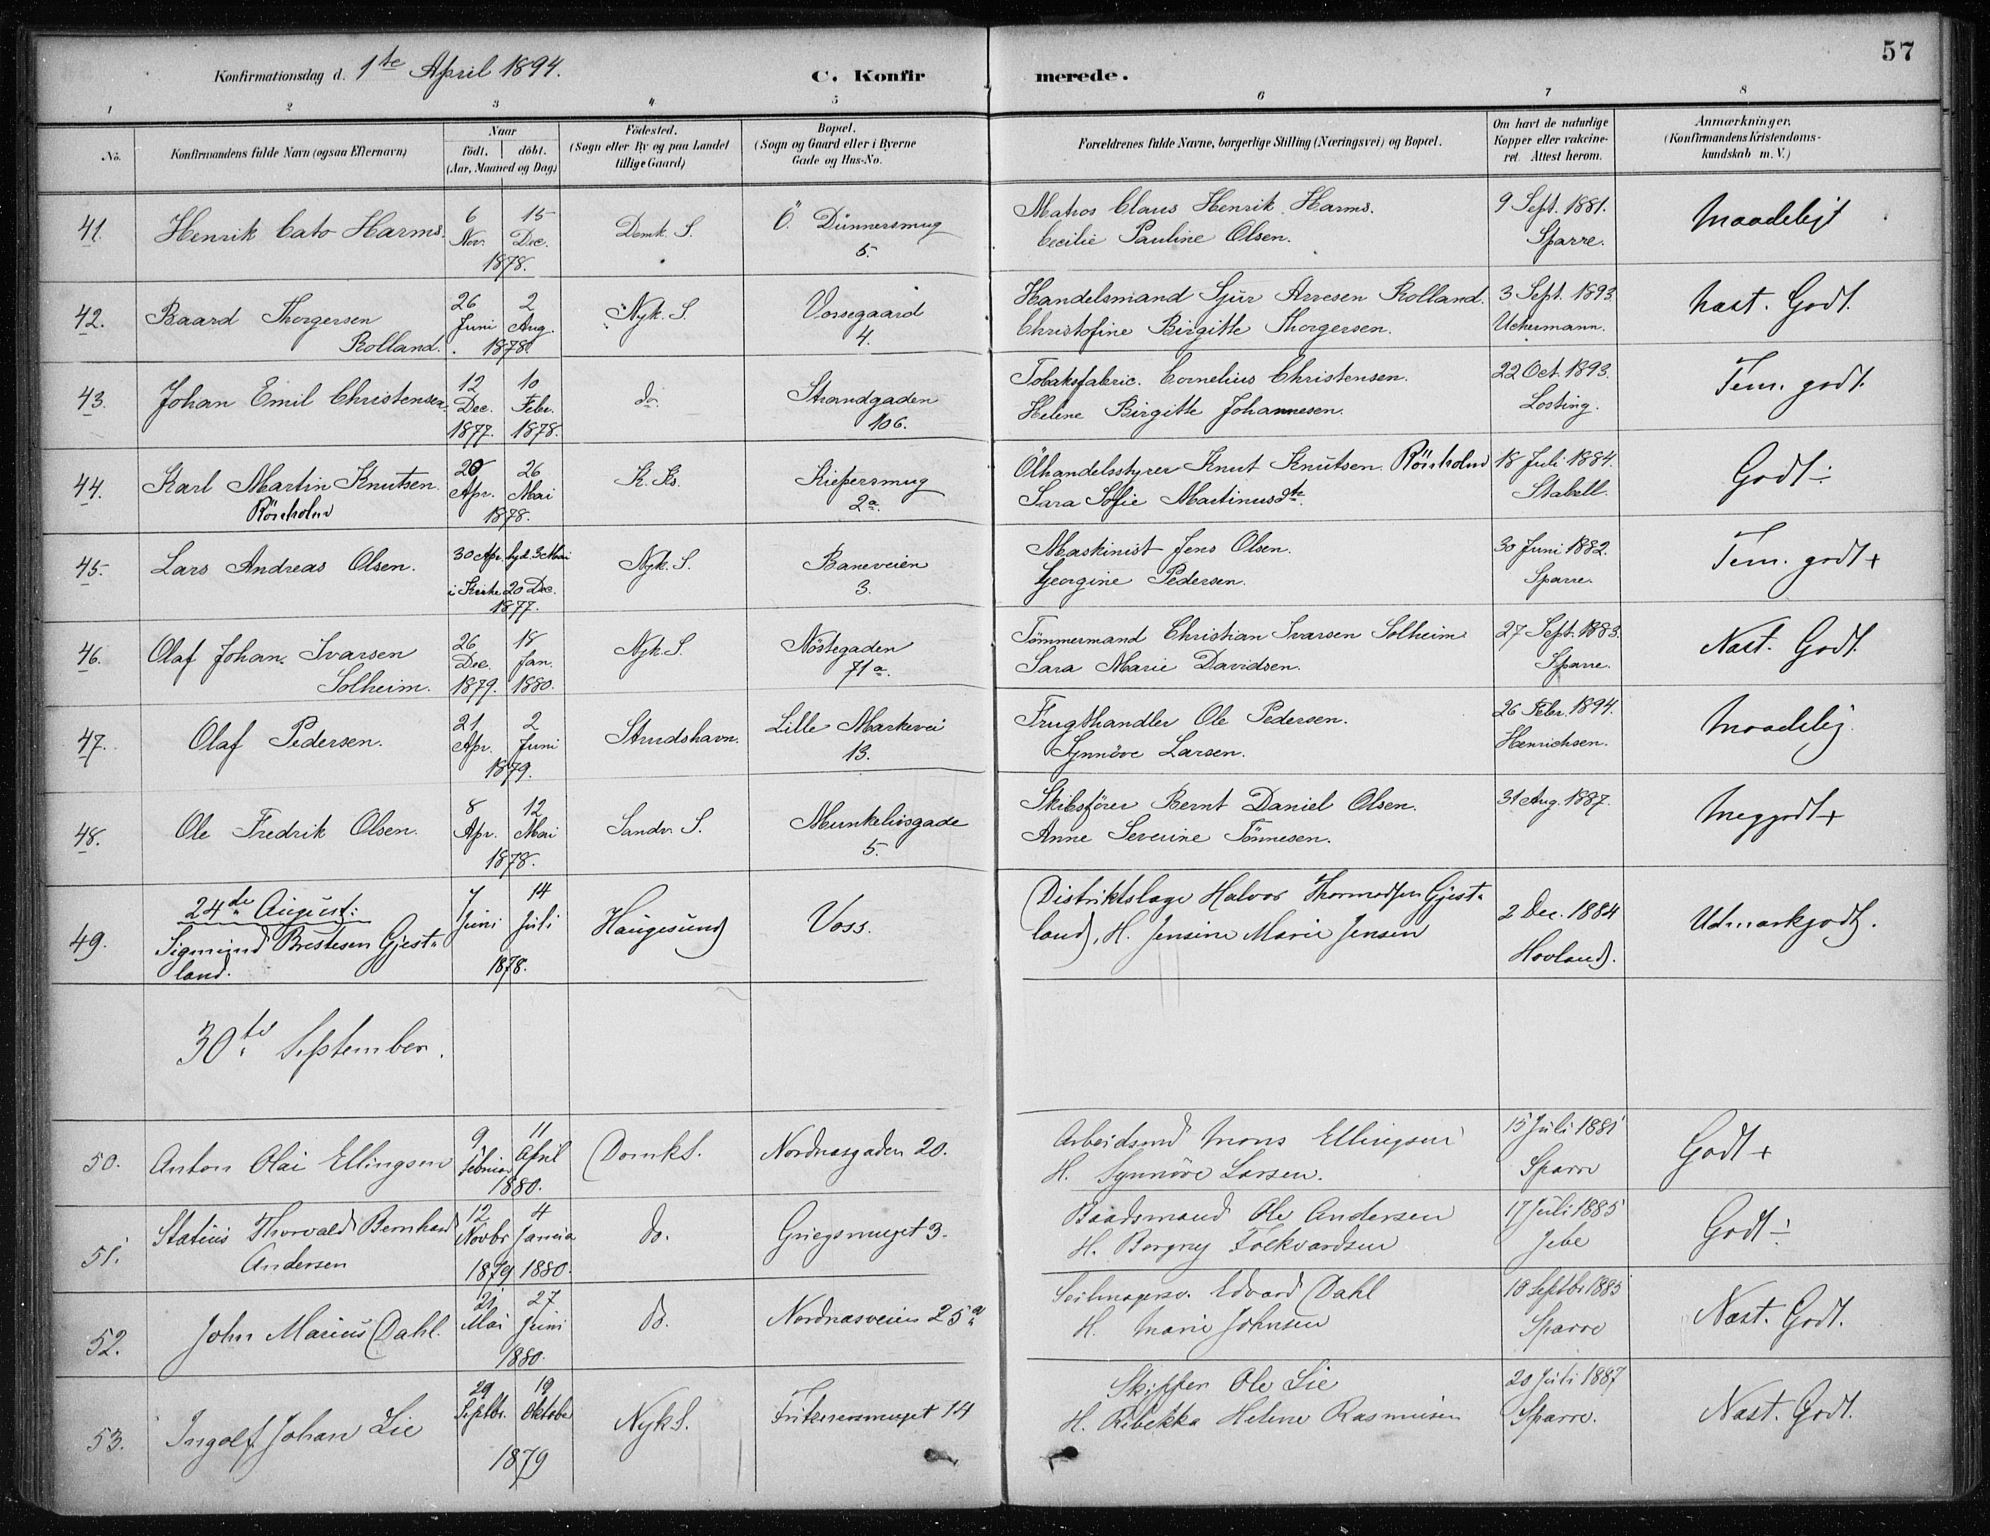 57
Konfirmationsdag d. 1ste April 1894.
C. Konfirmerede.
1 2 3 4 5 6 7 8
No.
Konfirmandens fulde Navn (ogsaa Efternavn)
Naar
født. døbt.
(Aar, Maaned og Dag)
Fødested.
(Sogn eller By og paa Landet
tillige Gaard)
Bopæl.
(Sogn og Gaard eller i Byerne
Gade og Hus-No.
Forældrenes fulde Navne, borgerlige Stilling (Næringsvei) og Bopæl.
Om havt de naturlige
Kopper eller vakcine-
ret. Attest herom.
Anmærkninger,
(Konfirmandens Kristendoms-
kundskab m. V.)
41.
Henrik Cato Harms.
6 Nov. 15 Dec.
1878.
Domk. S.
Ö. Dünnersmug
5.
Matros Claus Henrik Harms.
Cecilie Pauline Olsen.
9 Sept. 1881.
Sparre.
Maadeligt
42.
Baard Thorgersen
Rolland.
26 Juni 2 Aug.
1878.
Nyk. S.
Vossegaard
4.
Handelsmand Sjur Arnesen Rolland.
Christofine Birgitte Thorgersen.
3 Sept. 1893.
Uchermann.
Næst. Godt.
43.
Johan Emil Christensen.
12 Dec. 1877. 10 Febr. 1878.
do
Strandgaden
106.
Tobaksfabric. Cornelius Christensen.
Helene Birgitte Johannesen.
22 Oct. 1893.
Losting.
Tem. godt.
44.
Karl Martin Knutsen.
Rörsholm
20 Apr. 26 Mai
1878.
K. Ks.
Kiepersmug
2a.
Ölhandelsstyrer Knut Knutsen Rörsholm
Sara Sofie Martinusdtr.
18 Juli 1884.
Stabell.
Godt ÷
45.
Lars Andreas Olsen.
30 Apr. hjd. 3 Mai
i Kirke 20 Dec.
1877.
Nyk. S.
Baneveien
3.
Maskinist Jens Olsen.
Georgine Pedersen.
30 Juni 1882.
Sparre.
Tem. godt +
46.
Olaf Johan Ivarsen
Solheim.
26 Dec. 1879. 18 Jan. 1880.
Nyk. S.
Nöstegaden
71a.
Tömmermand Christian Ivarsen Solheim
Sara Marie Davidsen.
27 Sept. 1883.
Sparre.
Næst. Godt.
47.
Olaf Pedersen.
21 Apr. 2 Juni
1879.
Strudshavn.
Lille Markevei
13.
Frugthandler Ole Pedersen.
Synnöve Larsen.
26 Febr. 1894.
Henrichsen.
Maadelig.
48.
Ole Fredrik Olsen.
8 Apr. 12 Mai
1878.
Sandv. S.
Munkelivsgade
5.
Skibsförer Bernt Daniel Olsen.
Anne Severine Tönnesen.
31 Aug. 1887.
Meg godt +
24de August:
49.
Sigmund Brestesen Gjest-
land.
7 Juni 14 Juli
1878.
Haugesund
Voss.
Distriktslæge Halvor Thormodsen Gjest-
land, H. Jensine Marie Jensen
2 Dec. 1884
Hovland.
Udmærk godt.
30te September.
50.
Anton Olai Ellingsen
9 Februar 11 April
1880.
Domk S.
Nordnæsgaden 20.
Arbeidsmd Mons Ellingsen
H. Synnöve Larsen.
15 Juli 1881
Sparre
Godt +
51.
Statius Thorvald Bernhard
Andersen
12 Novbr 1879 4 Janua 1880.
do.
Griegsmuget 3.
Baadsmand Ole Andersen
H. Borgny Folkvardsen
17 Juli 1885
Jebe
Godt ÷
52.
John Marius Dahl.
21 Mai 27 Juni
1880.
do.
Nordnæsveien 25a
Seilmagersv. Edvard Dahl
H. Marie Johnsen
18 Septbr 1885
Sparre
Næst. Godt.
53.
Ingolf Johan Lie
29 Septbr. 19 Oktobe
1879
Nyk S.
Fritznersmuget 14
Skipper Ole Lie
H. Rebekka Helene Rasmusen
20 Juli 1887
Sparre.
Næst. Godt.